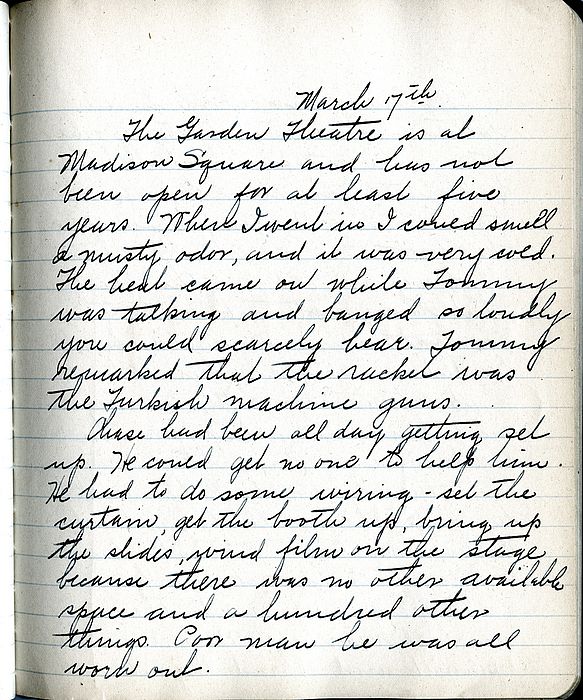 March 17th.
The Garden Theatre is at
Madison Square and has not
been open for at least five
years. When I went in I could smell
a musty odor, and it was very cold.
The heat came on while Tommy
was talking and banged so loudly
you could scarcely hear. Tommy
remarked that the racket was
the Turkish machine guns.
Chase had been all day getting set
up. He could get no one to help him.
He had to do some wiring - set the
curtain, get the booth up, bring up
the slides, wind film on the stage
because there was no other available
space and a hundred other
things. Poor man he was all
worn out.